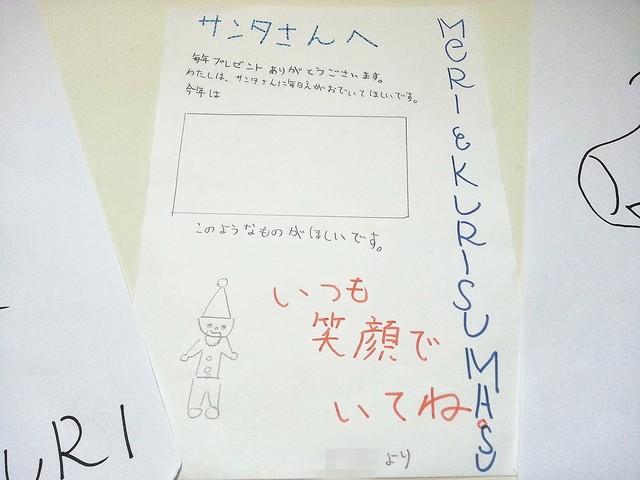 サンタさんへ
毎年プレゼントありがとうございます。
わたしは、サンタさんに毎日えがおでいてほしいです。
今年は
このようなものがほしいです。
いつも
笑顔で
いてね。
より
MERIEKURISUMASU
URI